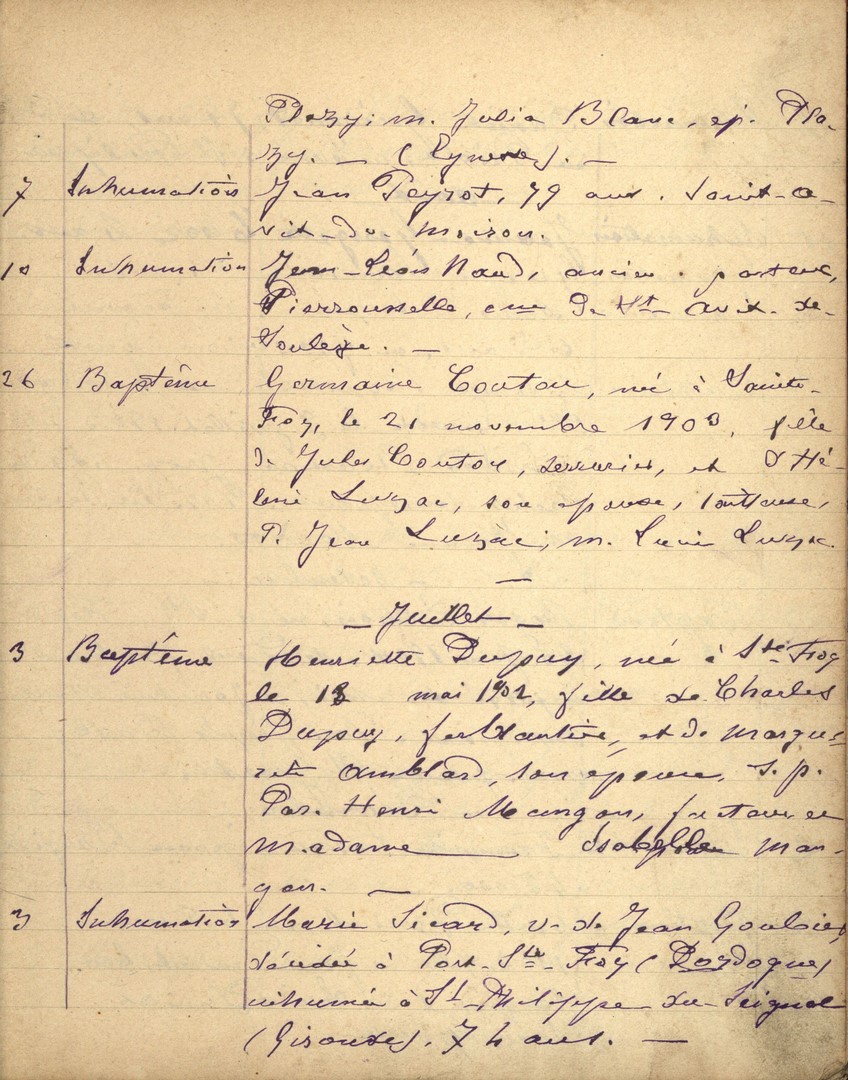 Plazy; m. Julia Blanc, ép. Pla-
zy. — (Eynesse). —
7 Inhumation Jean Peyrot, 79 ans. Saint-A-
vit-du-Moiron.
10 Inhumation Jean-Léon Naud, ancien porteur,
Pierrousselle, cne de St-Avit-de-
Soulège. —
26 Baptême Germaine Coutou, née à Sainte-
Foy, le 21 novembre 1903, fille
de Jules Coutou, serrurier, et d'Hé-
lène Luzac, son épouse,
P. Jean Luzac; m. Lucie Luzac
—
— Juillet —
3 Baptême Henriette Dupuy, née à Ste-Foy
le 13 mai 1902, fille de Charles
Dupuy, ferblantier, et de Margue-
rite Amblard, son épouse, s. p.
Par. Henri Mangon, facteur et
madame — Isabelle Man-
gon. —
3 Inhumation Marie Sicard, v. de Jean
décédée à Port-Ste-Foy (Dordogne)
inhumée à St-Philippe-du-Seignal
(Gironde). 74 ans. —